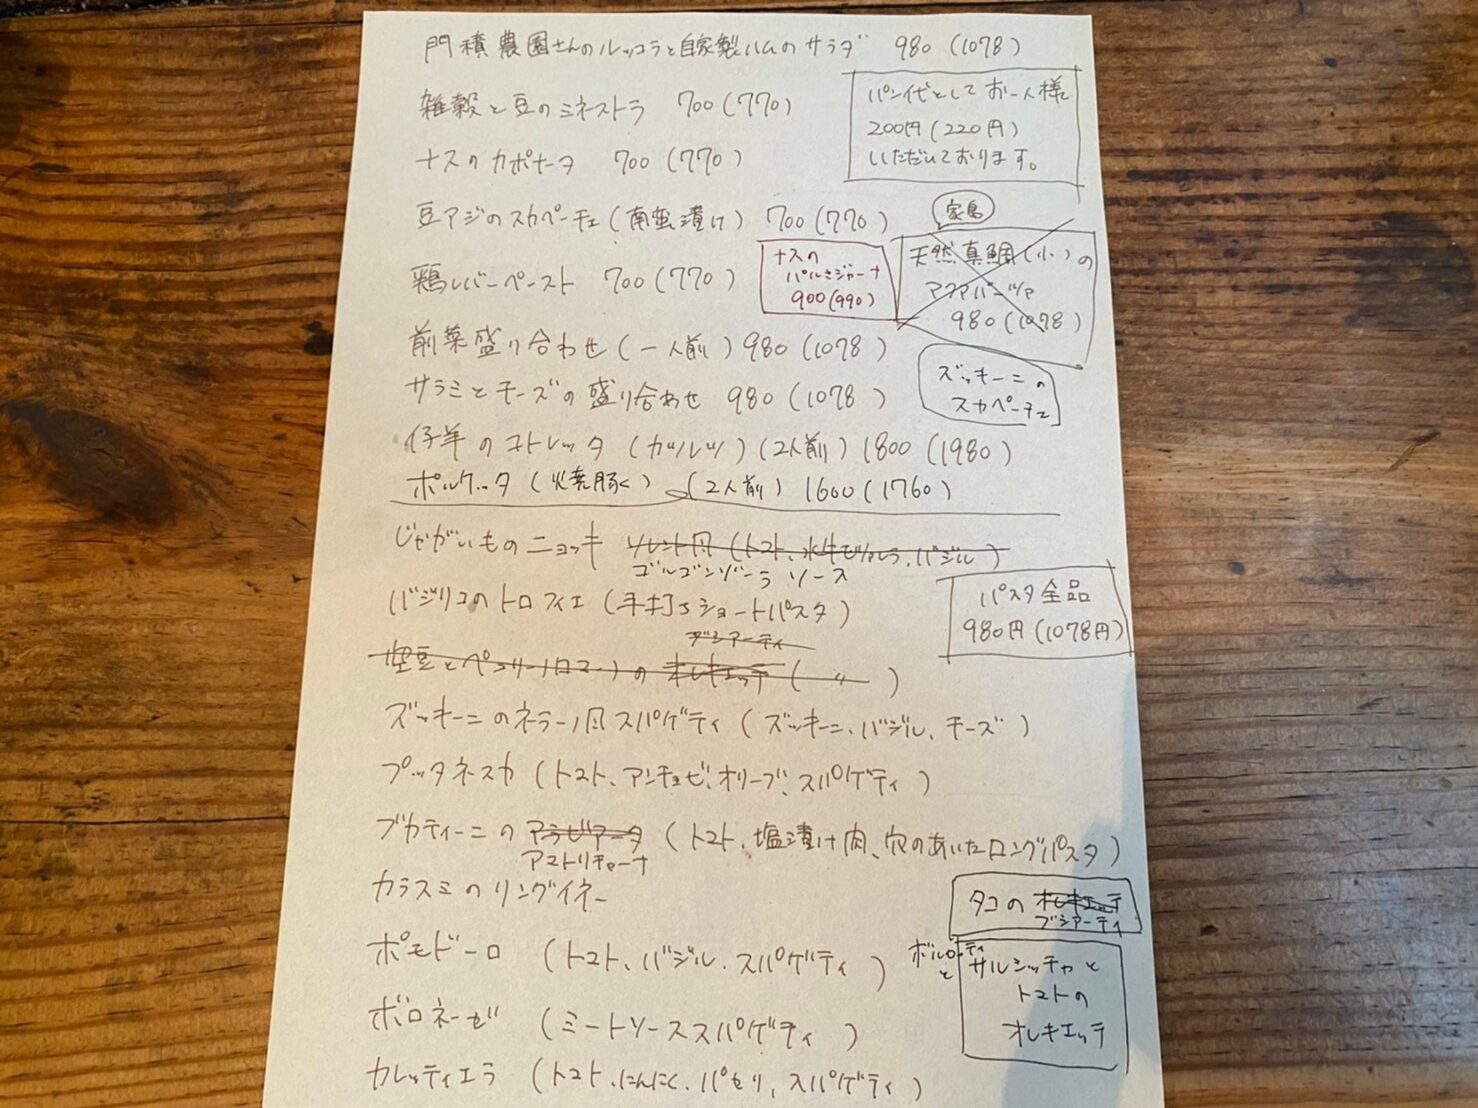 門積農園さんのルッコラと自家製ハムのサラダ 980(1078)
パン代としてお一人様
200円(220円)
いただいております。
雑穀と豆のミネストラ 700(770)
ナスのカポナータ 700(770)
豆アジのスカペーチェ(南蛮漬け) 700(770)
家島
天然真鯛(小)の
アクアパッツァ
980(1078)
ナスの
パルミジャーナ
900(990)
鶏レバーペースト 700(770)
前菜盛り合わせ(一人前) 980(1078)
ズッキーニの
スカペーチェ
サラミとチーズの盛り合わせ 980(1078)
仔羊のコトレッタ(カツレツ)(2人前) 1800(1980)
ポルケッタ(焼豚)(2人前) 1600(1760)
じゃがいものニョッキ ソレント風(トマト、水牛モツァレラ、バジル)
ゴルゴンゾーラソース
パスタ全品
980円(1078円)
バジリコのトロフィエ(手打ちショートパスタ)
ブシアーティ
空豆とペコリーノロマーノのオレキエッテ(〃)
ズッキーニのネラーノ風スパゲティ(ズッキーニ、バジル、チーズ)
プッタネスカ(トマト、アンチョビ、オリーブ、スパゲティ)
ブカティーニのアラビアータ(トマト、塩漬け肉、穴のあいたロングパスタ)
アマトリチャーナ
カラスミのリングイネ
タコのオレキエッテ
ブシアーティ
ポモドーロ(トマト、バジル、スパゲティ)
ボルロッティ
と
サルシッチャと
トマトの
オレキエッテ
ボロネーゼ(ミートソーススパゲティ)
カレッティエラ(トマト、にんにく、パセリ、スパゲティ)